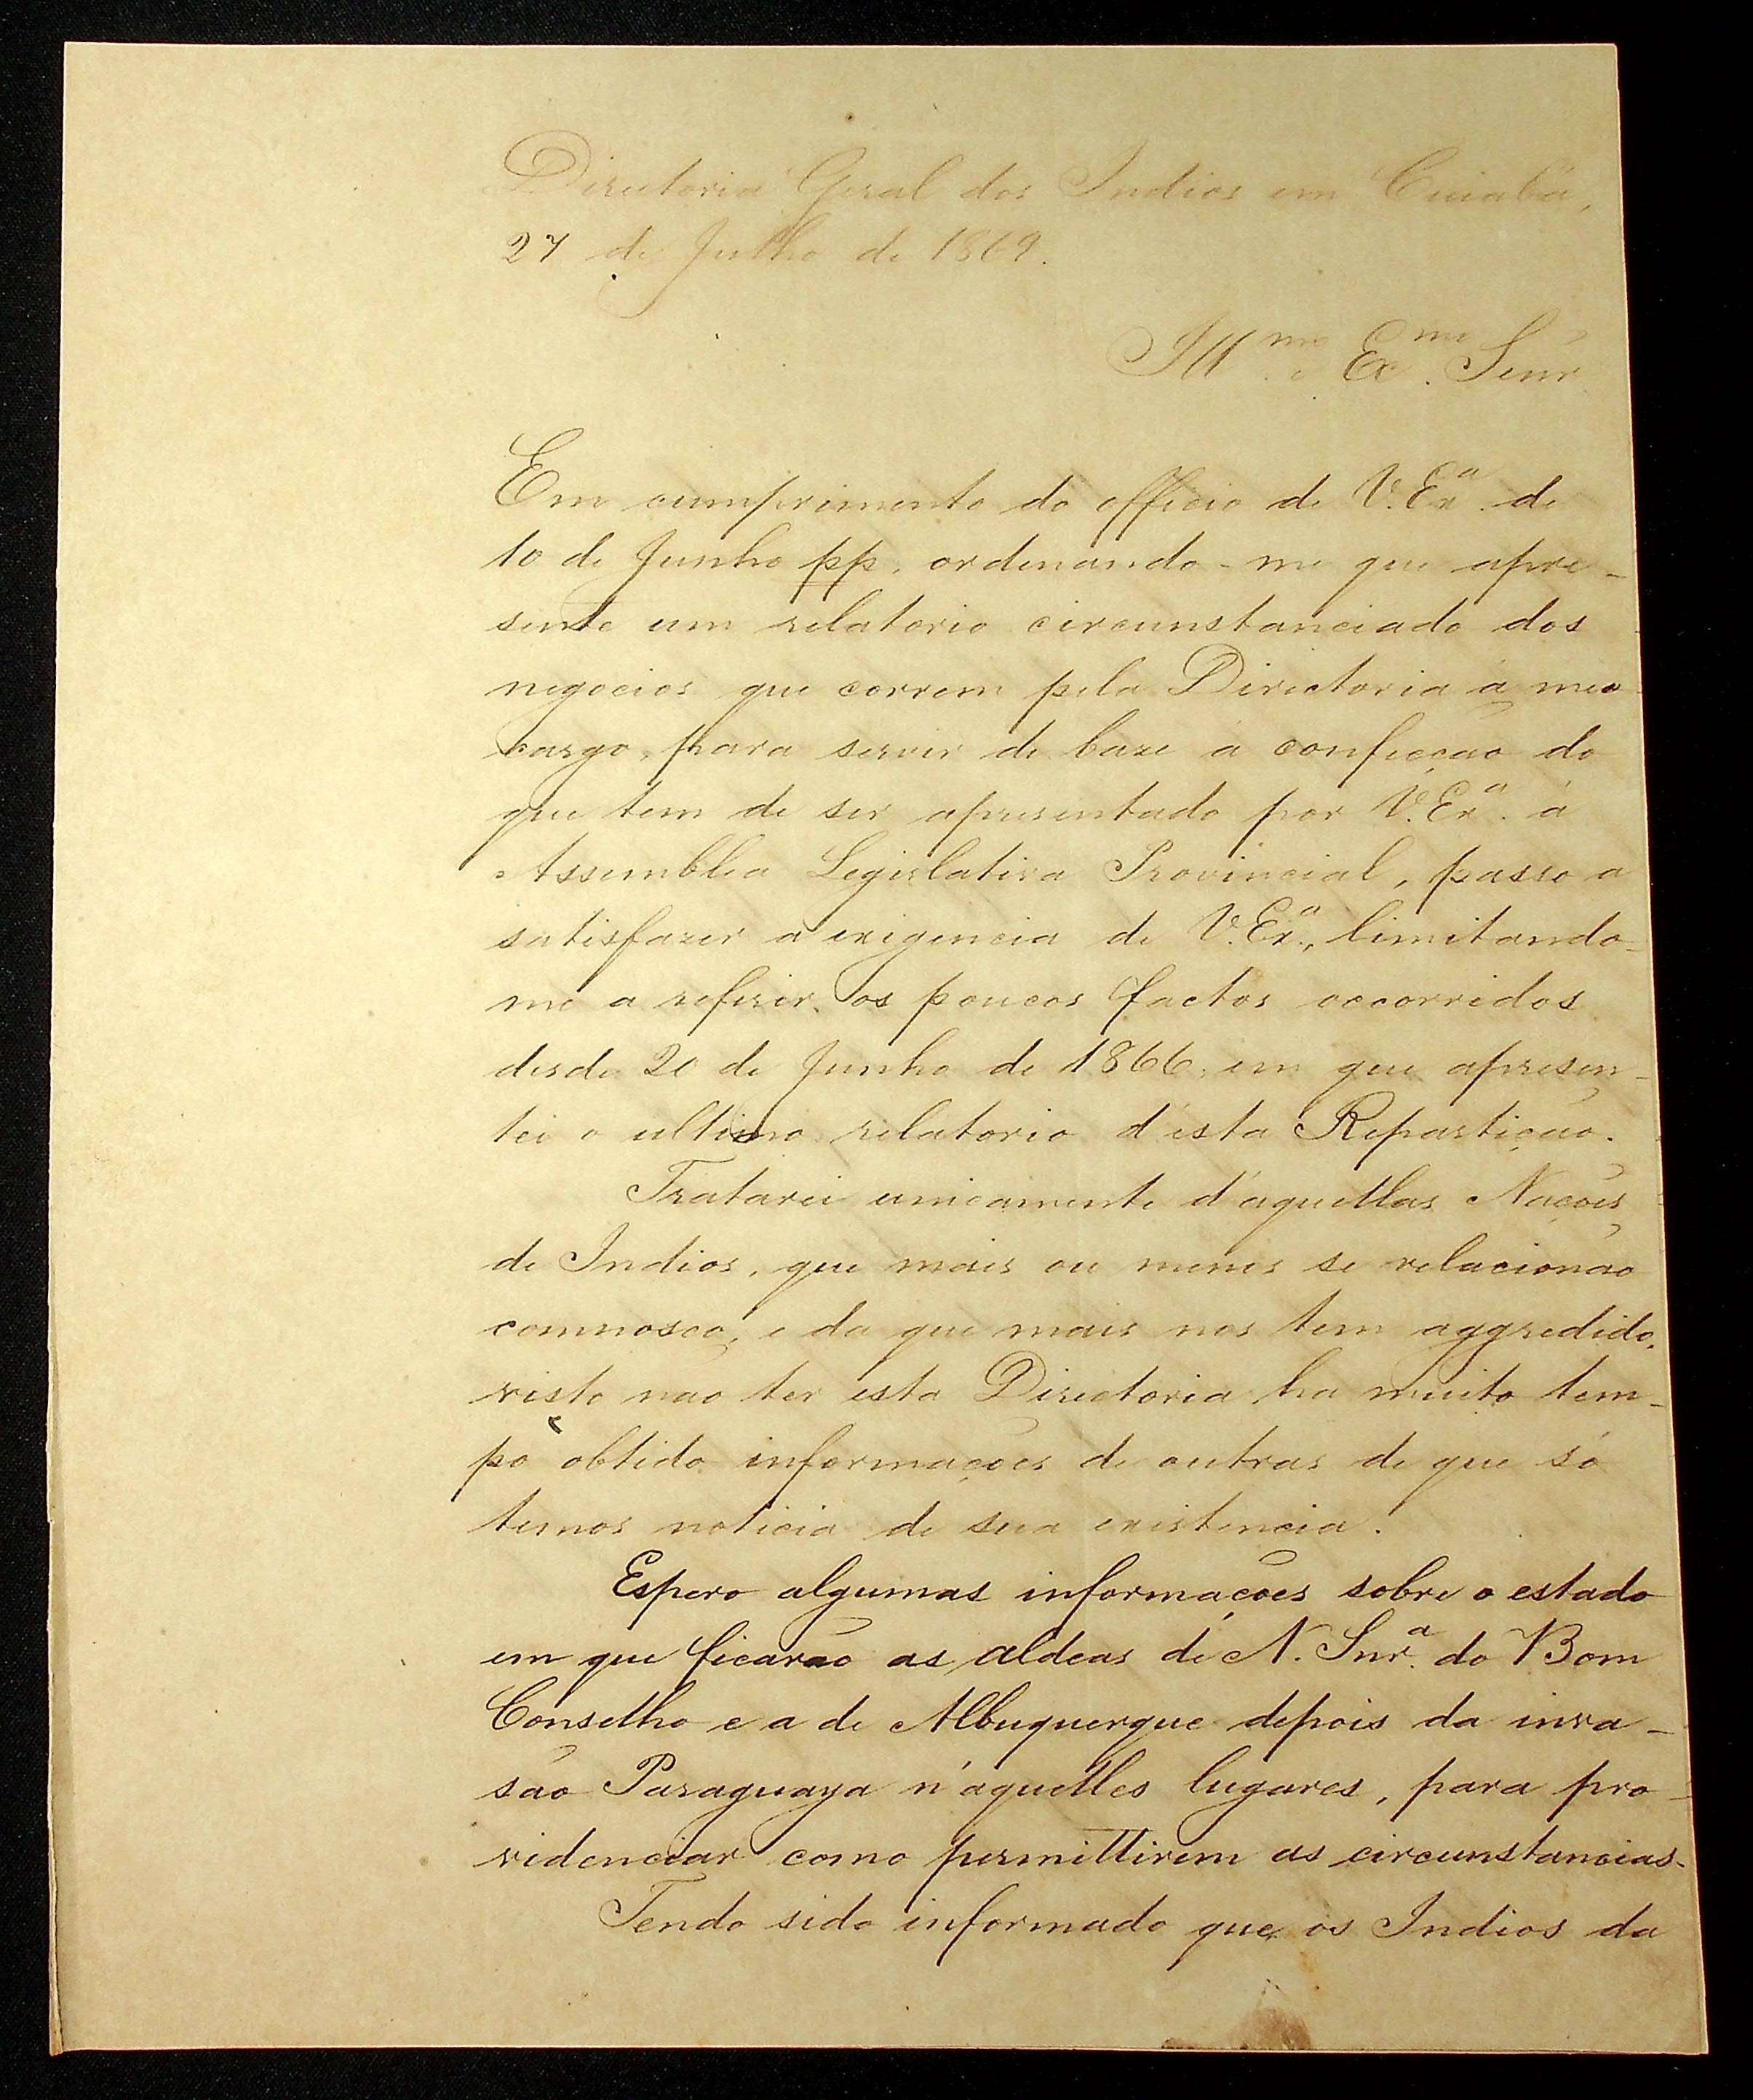 Directoria Geral dos Indios em Cuiabá,
27 de Julho de 1869.
Ill.mo e Ex.mo Senr
Em cumprimento do officio de V. Ex.a de
10 de Junho pp, ordenando-me que apre-
sente um relatorio circunstanciado dos
negocios que correm pela Directoria a meo
cargo, para servir de baze á confecção do
que tem de ser apresentado por V. Ex.a á
Assemblea Legislativa Provincial, passo a
satisfazer a exigencia de V. Ex.a, limitando-
me a referir os poucos factos occorridos
desde 20 de Junho de 1866, em que apresen-
tei o ultimo relatorio d'esta Repartição.
Tratarei unicamente d'aquellas Nações
de Indios, que mais ou menos se relacionão
comnosco, e da que mais nos tem aggredido,
visto não ter esta Directoria ha muito tem-
po obtido informações de outras de que só
temos noticia de sua existencia.
Espero algumas informações sobre o estado
em que ficarão as aldeas de N. Snr.a do Bom
Conselho e a de Albuquerque depois da inva-
são Paraguaya n'aquelles lugares, para pro-
videnciar como permittirem as circunstancias.
Tendo sido informado que os Indios da